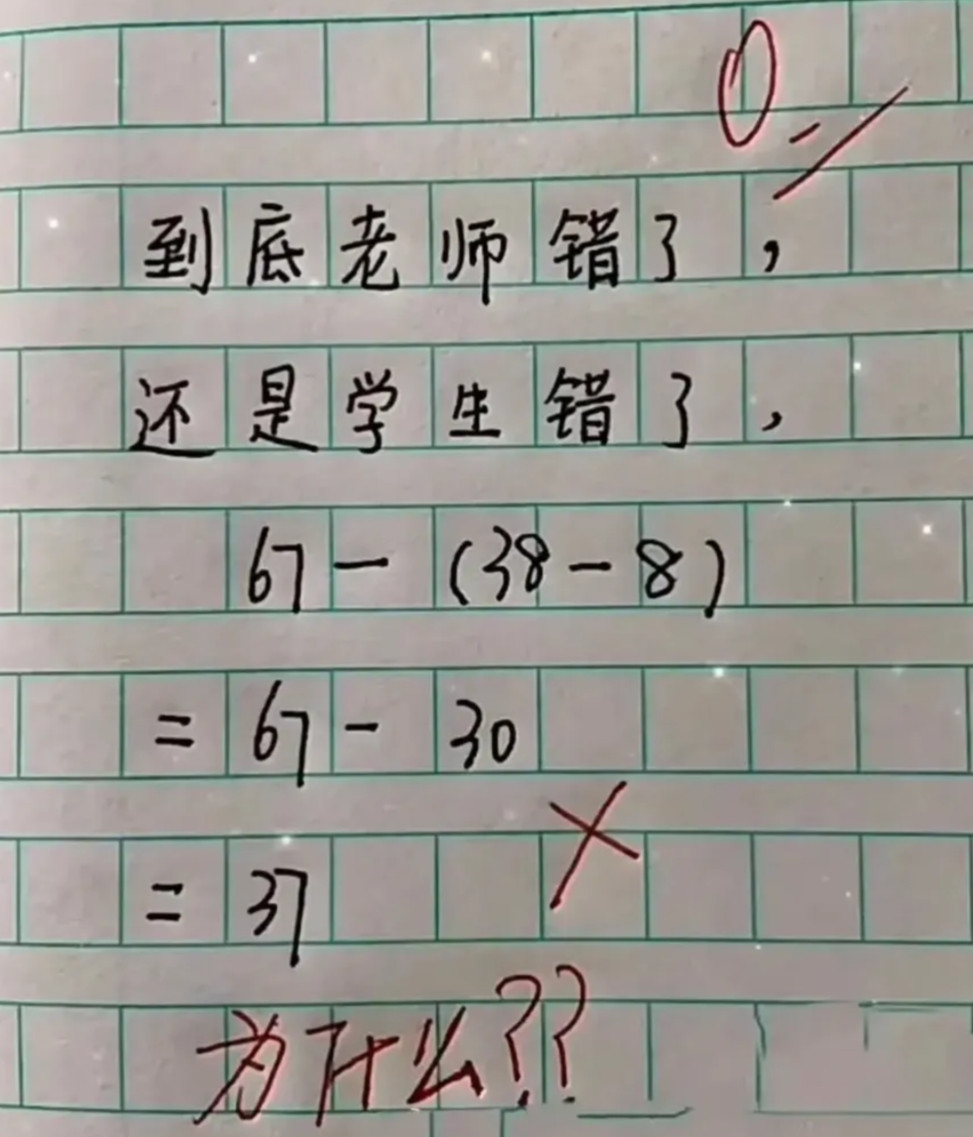 0
到底老师错了，
还是学生错了，
67-(38-8)
=67-30
=37
为什么??